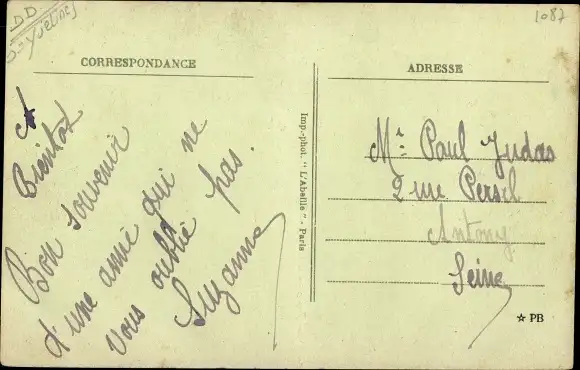 DD
Yvelines
1087
CORRESPONDANCE
A
Bientot
Bon souvenir
d'une amie qui ne
vous oublie pas.
Suzanne
Imp.-phot. "L'Abeille" - Paris
ADRESSE
Mr. Paul Judas
2 rue Persil
Antony
Seine
☆ PB